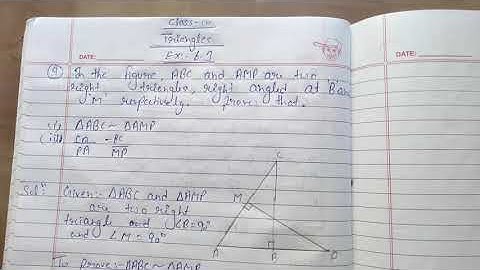 Class-10
Triangles
Ex:- 6.3
DATE:
DATE:
9) In the figure, ABC and AMP are two
right triangles, right angled at B and
M respectively. prove that.
(i) ΔABC ~ ΔAMP
(ii) CA = BC
PA MP
Sol:- Given:- ΔABC and ΔAMP
are two right
triangle and ∠B=90°
and ∠M = 90°
To prove:- ΔABC ~ ΔAMP
C
M
A
B
P